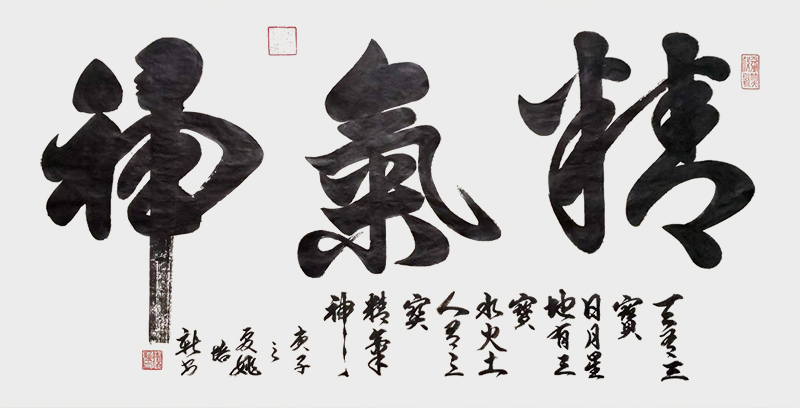 精氣神
天有三
寶
日月星
地有三
寶
水火土
人有三
寶
精氣
神
庚子
之
夏姚
新书